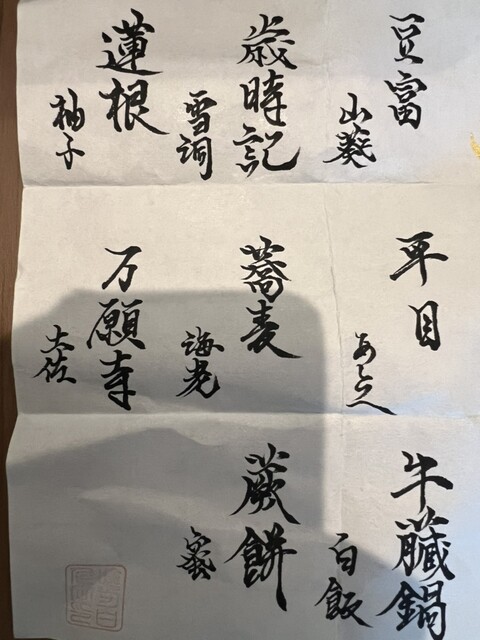 豆富
山葵
歳時記
雪洞
蓮根
柚子
平目
蕎麦
海老
万願寺
土佐
牛臓鍋
白飯
蕨餅
蜜